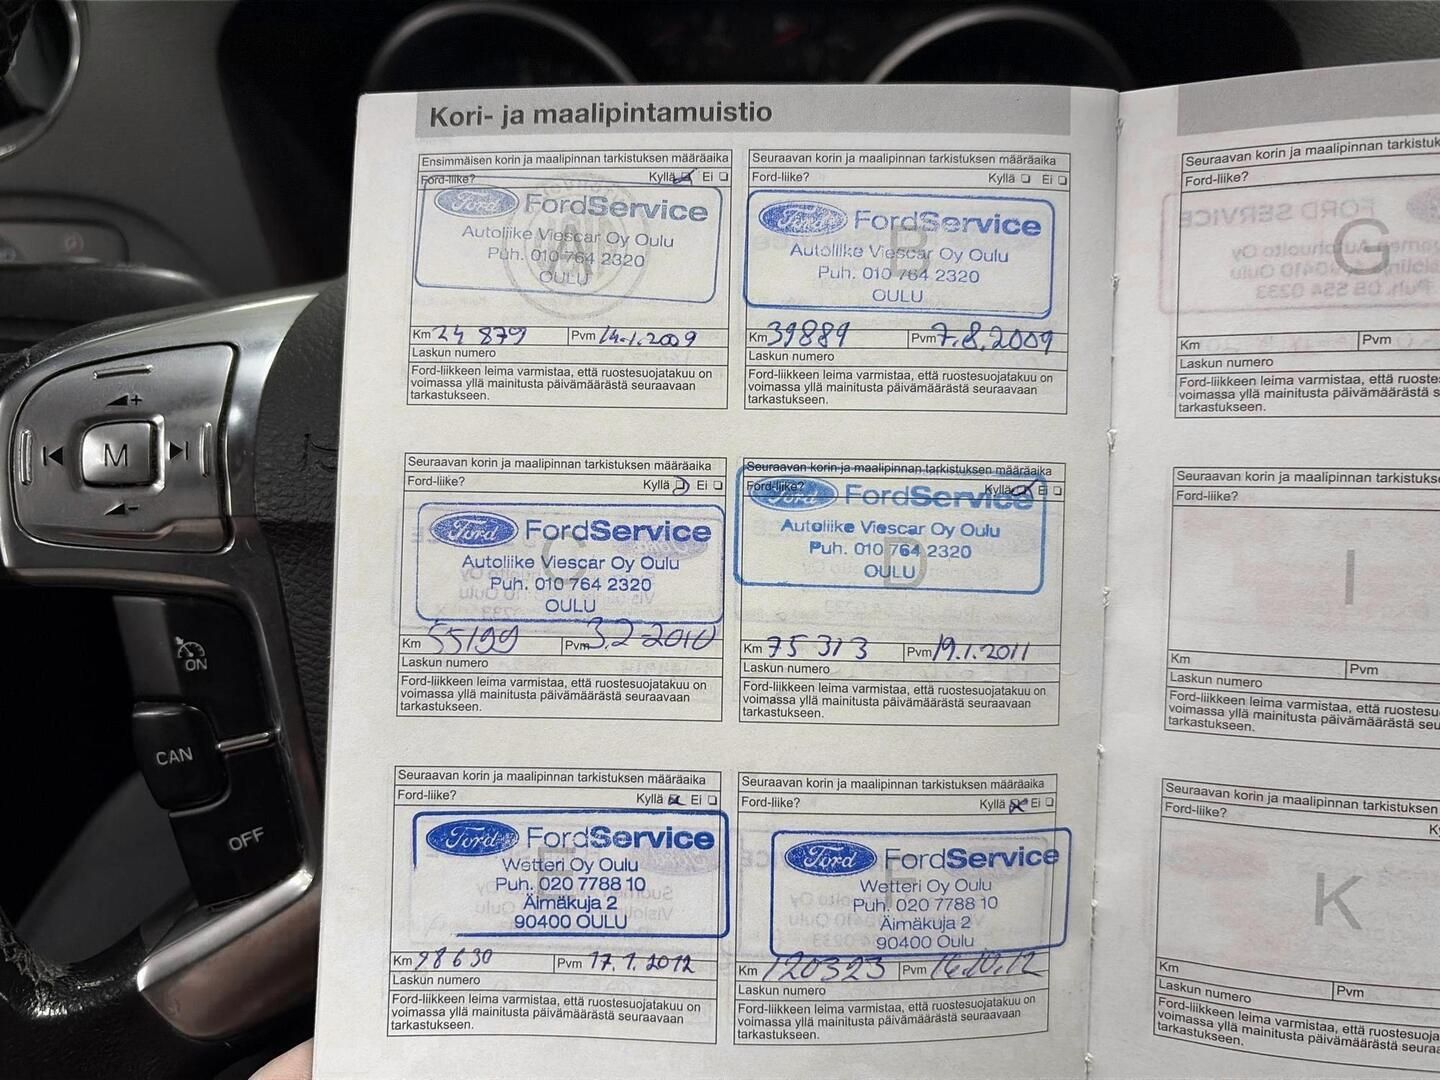 Kori- ja maalipintamuistio
Ensimmäisen korin ja maalipinnan tarkistuksen määräaika
Ford-liike? Kyllä Ei
Ford FordService
Autoliike Viescar Oy Oulu
Puh. 010 764 2320
OULU
A
Km 24 879 Pvm 14.1.2009
Laskun numero
Ford-liikkeen leima varmistaa, että ruostesuojatakuu on
voimassa yllä mainitusta päivämäärästä seuraavaan
tarkastukseen.
Seuraavan korin ja maalipinnan tarkistuksen määräaika
Ford-liike? Kyllä Ei
Ford FordService
B
Autoliike Viescar Oy Oulu
Puh. 010 764 2320
OULU
Km 39889 Pvm 7.8.2009
Laskun numero
Ford-liikkeen leima varmistaa, että ruostesuojatakuu on
voimassa yllä mainitusta päivämäärästä seuraavaan
tarkastukseen.
Seuraavan korin ja maalipinnan tarkistuksen määräaika
Ford-liike? Kyllä Ei
Ford FordService
C
Autoliike Viescar Oy Oulu
Puh. 010 764 2320
OULU
Km 55199 Pvm 3.2.2010
Laskun numero
Ford-liikkeen leima varmistaa, että ruostesuojatakuu on
voimassa yllä mainitusta päivämäärästä seuraavaan
tarkastukseen.
Seuraavan korin ja maalipinnan tarkistuksen määräaika
Ford-liike? Kyllä Ei
Ford FordService
Autoliike Viescar Oy Oulu
Puh. 010 764 2320
OULU
D
Km 75 313 Pvm 19.1.2011
Laskun numero
Ford-liikkeen leima varmistaa, että ruostesuojatakuu on
voimassa yllä mainitusta päivämäärästä seuraavaan
tarkastukseen.
Seuraavan korin ja maalipinnan tarkistuksen määräaika
Ford-liike? Kyllä Ei
Ford FordService
E
Wetteri Oy Oulu
Puh. 020 7788 10
Äimäkuja 2
90400 OULU
Km 98630 Pvm 17.1.2012
Laskun numero
Ford-liikkeen leima varmistaa, että ruostesuojatakuu on
voimassa yllä mainitusta päivämäärästä seuraavaan
tarkastukseen.
Seuraavan korin ja maalipinnan tarkistuksen määräaika
Ford-liike? Kyllä Ei
Ford FordService
F
Wetteri Oy Oulu
Puh. 020 7788 10
Äimäkuja 2
90400 Oulu
Km 120323 Pvm 16.10.12
Laskun numero
Ford-liikkeen leima varmistaa, että ruostesuojatakuu on
voimassa yllä mainitusta päivämäärästä seuraavaan
tarkastukseen.
Seuraavan korin ja maalipinnan tarkistuksen
Ford-liike?
G
Km Pvm
Laskun numero
Ford-liikkeen leima varmistaa, että
voimassa yllä mainitusta päivämäärästä
tarkastukseen.
Seuraavan korin ja maalipinnan tarkistuksen
Ford-liike?
I
Km Pvm
Laskun numero
Ford-liikkeen leima varmistaa, että
voimassa yllä mainitusta päivämäärästä
tarkastukseen.
Seuraavan korin ja maalipinnan tarkistuksen
Ford-liike?
K
Km Pvm
Laskun numero
Ford-liikkeen leima varmistaa, että
voimassa yllä mainitusta päivämäärästä
tarkastukseen.
+
M
-
ON
CAN
OFF